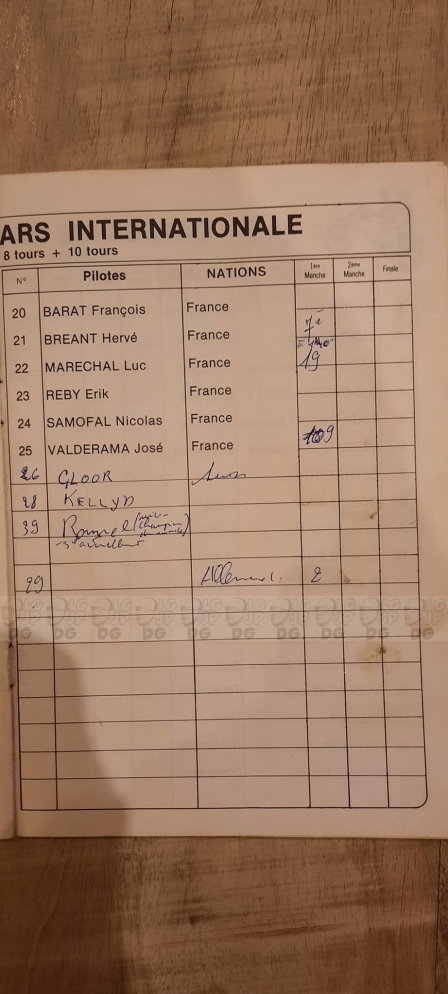 ARS INTERNATIONALE
8 tours + 10 tours
N° Pilotes NATIONS 1ère Manche 2ème Manche Finale
20 BARAT François France
21 BREANT Hervé France 7è
22 MARECHAL Luc France 19
23 REBY Erik France
24 SAMOFAL Nicolas France
25 VALDERAMA José France 9
26 GLOOR
28 KELLYD
39
29 2
DG DG DG DG DG DG DG